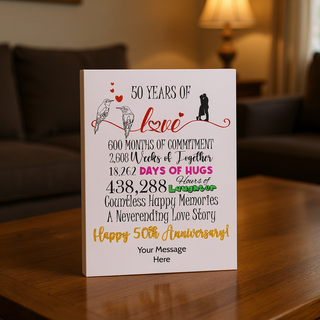 50 YEARS OF
love
600 MONTHS OF COMMITMENT
2,608 Weeks of Together
18,262 DAYS OF HUGS
438,288 Hours of Laughter
Countless Happy Memories
A Neverending Love Story
Happy 50th Anniversary!
Your Message
Here